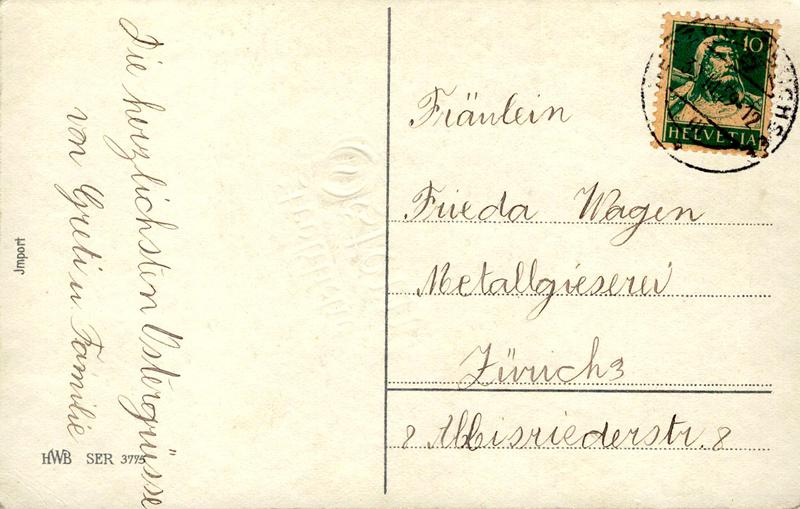 Die herzlichsten Ostergrüsse
von Greti u Familie
Jmport
HWB SER 3775
10
HELVETIA
Fräulein
Frieda Wagen
Metallgieserei
Zürich 3
8 Albisriederstr. 8